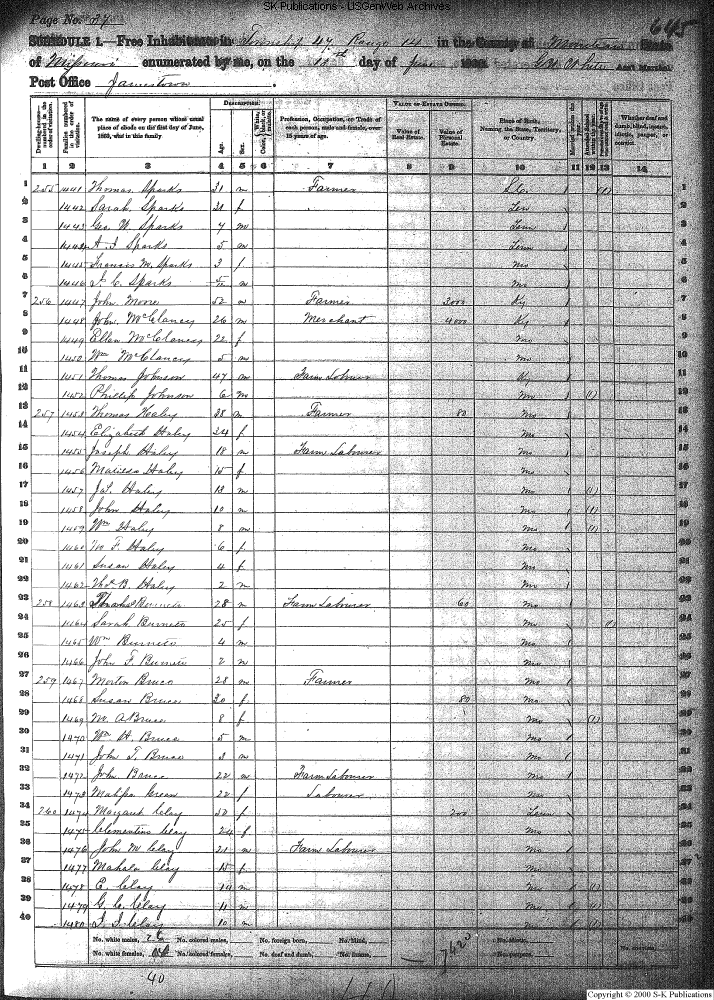 SK Publications - USGenWeb Archives
Page No. 87
645
SCHEDULE 1.—Free Inhabitants in Township 47 Range 14 in the County of Moniteau State
of Missouri enumerated by me, on the 11th day of June 1860. Ass't Marshal
Post Office Jamestown.
DESCRIPTION. VALUE OF ESTATE OWNED.
Dwelling-houses—numbered in the order of visitation. Families numbered in the order of visitation. The name of every person whose usual place of abode on the first day of June, 1860, was in this family. Age. Sex. Color, White, black, or mulatto. Profession, Occupation, or Trade of each person, male and female, over 15 years of age. Value of Real Estate. Value of Personal Estate. Place of Birth, Naming the State, Territory, or Country. Whether deaf and dumb, blind, insane, idiotic, pauper, or convict.
1 2 3 4 5 6 7 8 9 10 11 12 13 14
1 255 1441 Thomas Sparks 31 m Farmer (1) 1
2 1442 Sarah Sparks f Ten 2
3 1443 Geo. W. Sparks 7 m Tenn 3
4 1444 A. J Sparks 5 m Tenn 4
5 1445 Francis M. Sparks 3 f Mo 5
6 1446 J. C. Sparks 5/12 m Mo 6
7 256 1447 John Moore 52 m Farmer 2000 Ky 7
8 1448 John McClancy 26 m Merchant 4000 Ky 8
9 1449 Ellen McClancy 22 f Mo 9
10 1450 Wm McClancy 5 m Mo 10
11 1451 Thomas Johnson 47 m Farm Laborer Ky 11
12 1452 Phillip Johnson 6 m Mo (1) 12
13 257 1453 Thomas Haley 38 m Farmer 80 Mo 13
14 1454 Elizabeth Haley 34 f Mo 14
15 1455 Joseph Haley 18 m Farm Labourer Mo 15
16 1456 Matilda Haley 15 f Mo 16
17 1457 Jas. Haley 13 m Mo (1) 17
18 1458 John Haley 10 m Mo (1) 18
19 1459 Wm Haley 8 m Mo (1) 19
20 1460 F. Haley 6 f Mo 20
21 1461 Susan Haley 4 f Mo 21
22 1462 Thos B. Haley 2 m Mo 22
23 258 1463 Burnets 28 m Farm Labourer 60 Mo 23
24 1464 Sarah Burnets 25 f Mo (1) 24
25 1465 Wm Burnets 4 m Mo 25
26 1466 John F. Burnets 2 m Mo 26
27 259 1467 Morton Bruce 28 m Farmer Mo 27
28 1468 Susan Bruce 30 f 80 Mo 28
29 1469 M. A Bruce 8 f Mo (1) 29
30 1470 Wm H. Bruce 5 m Mo 30
31 1471 John T. Bruce 3 m Mo 31
32 1472 John Bruce 22 m Farm Labourer Mo 32
33 1473 Green 22 f Labourer Mo 33
34 260 1474 Margaret Clay 50 f 200 Tenn 34
35 1475 Clementine Clay 24 f Mo 35
36 1476 John M Clay 21 m Farm Labourer Mo 36
37 1477 Mahala Clay 15 f Mo 37
38 1478 E. Clay 14 m Mo (1) 38
39 1479 G. C. Clay 11 m Mo (1) 39
40 1480 J. J. Clay 10 m Mo (1) 40
No. white males, No. colored males, No. foreign born, No. blind, No. idiotic,
No. white females, No. colored females, No. deaf and dumb, No. insane, No. paupers, No. convicts,
7420
40
Copyright © 2000 S-K Publications